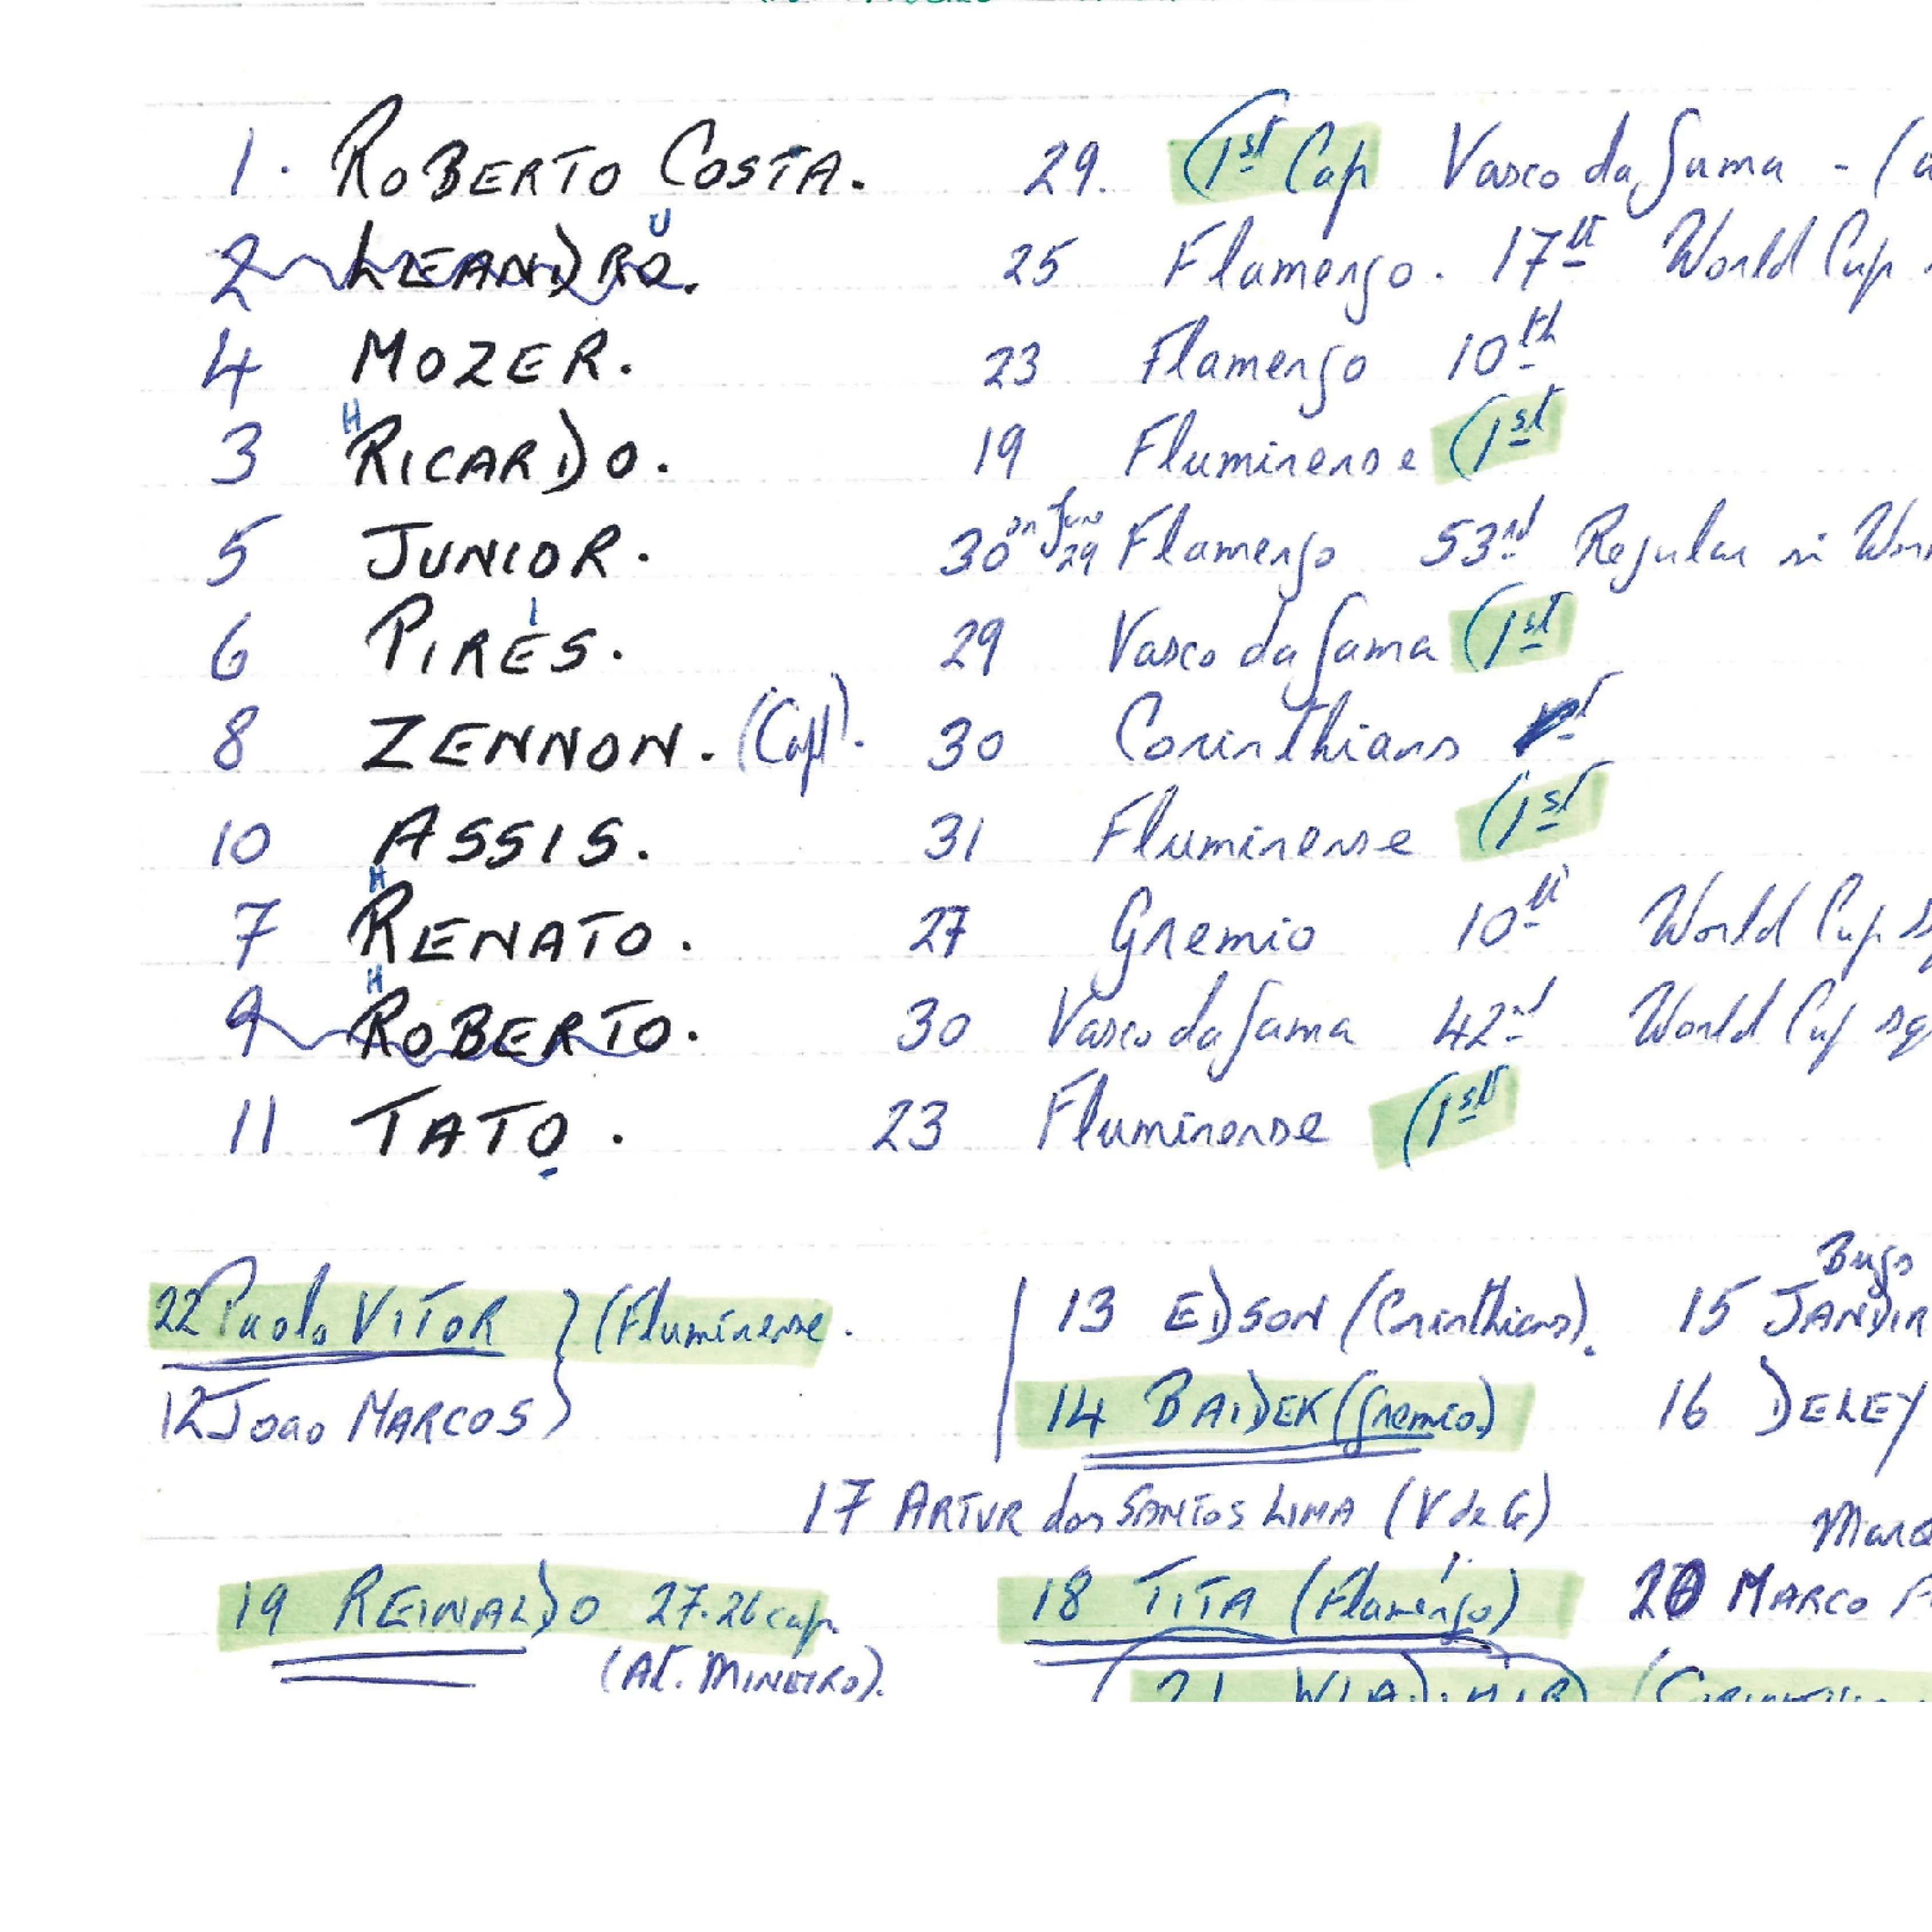 1. ROBERTO COSTA. 29. (1st Cap Vasco da Gama - (a
U
2 LEANDRO. 25 Flamengo. 17th World Cup
4 MOZER. 23 Flamengo 10th
H
3 RICARDO. 19 Fluminense (1st
5 JUNIOR. 30 on June 29 Flamengo 53rd Regular in Wor
I
6 PIRES. 29 Vasco da Gama (1st
8 ZENNON. (Capt). 30 Corinthians
10 ASSIS. 31 Fluminense (1st
H
7 RENATO. 27 Gremio 10th World Cup s
H
9 ROBERTO. 30 Vasco da Gama 42nd World Cup sq
11 TATO. 23 Fluminense (1st
Bugs
22 Paolo VITOR } (Fluminense. 13 EDSON (Corinthians). 15 JANDIR
12 Joao MARCOS } 14 BAIDEK (Gremio) 16 DELEY
17 ARTUR dos SANTOS LIMA (V de G)
19 REINALDO 27. 26 cap. 18 TITA (Flamengo) 20 MARCO
(At. MINEIRO). (21 WLADIMIR) (Corinthian